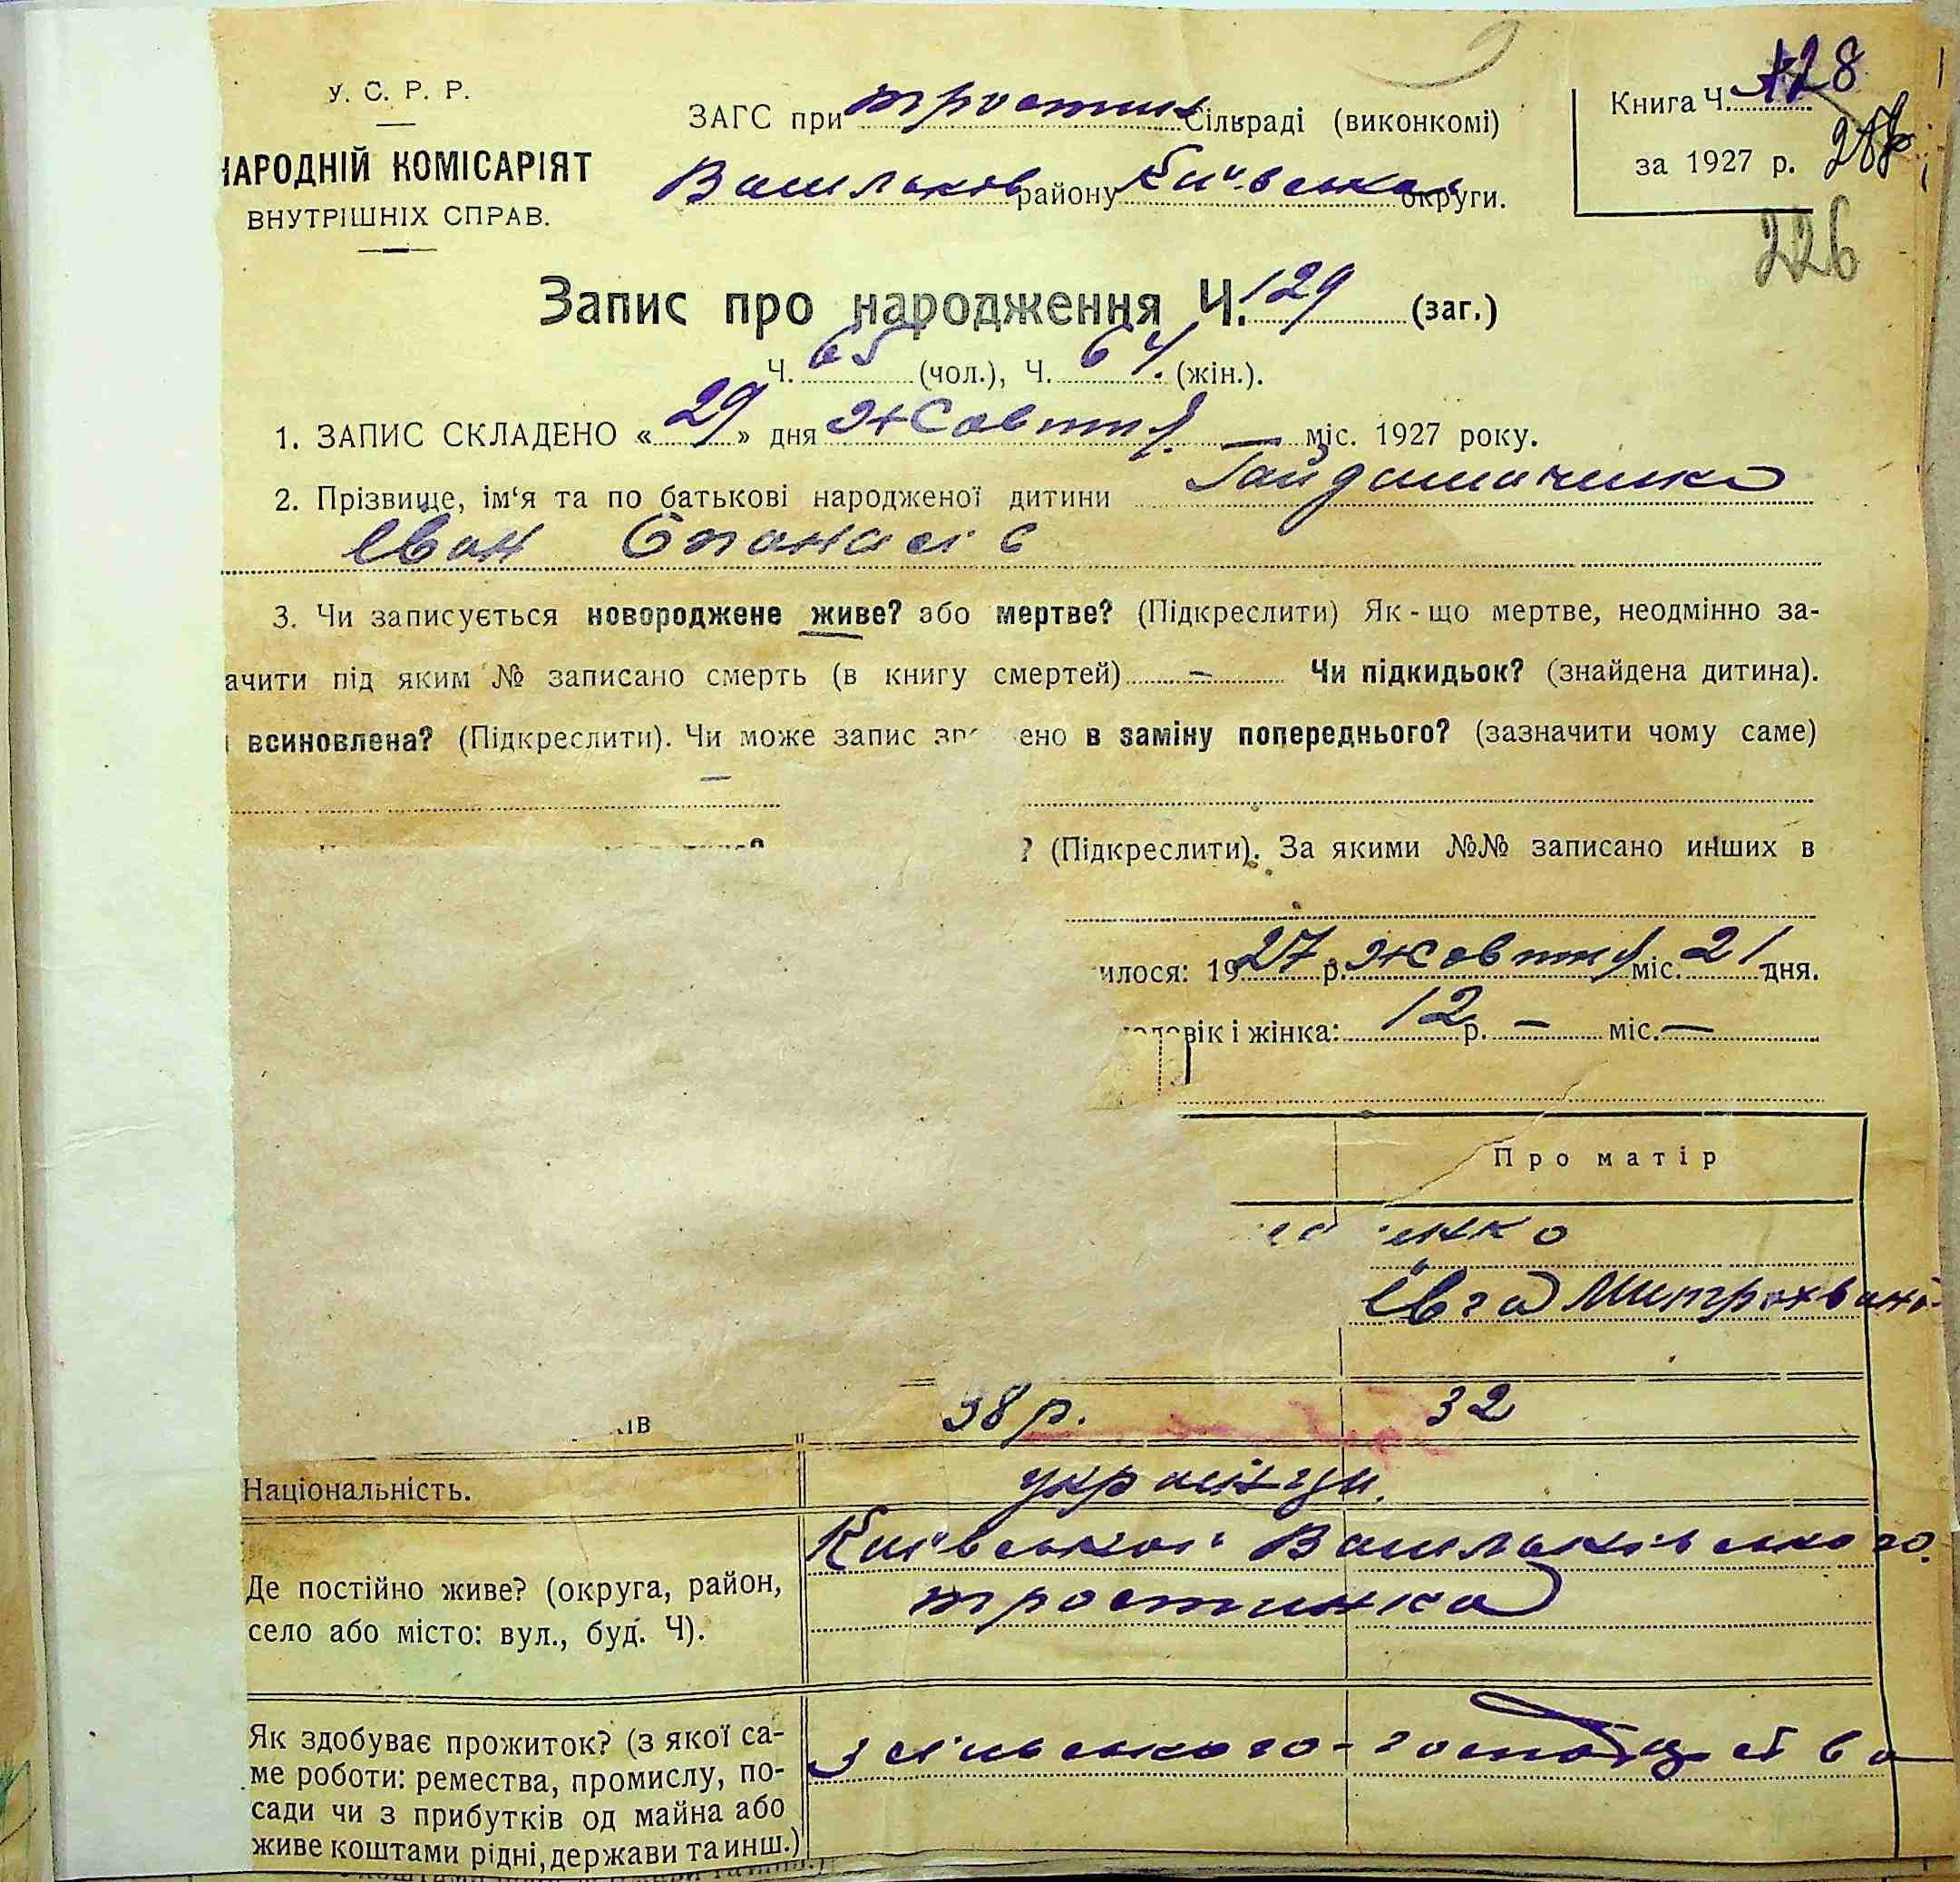 У. С. Р. Р.
НАРОДНІЙ КОМІСАРІЯТ
ВНУТРІШНІХ СПРАВ.
ЗАГС при тростин Сільраді (виконкомі)
Васильков району Київської округи.
Книга Ч. 128
за 1927 р.
226
Запис про народження Ч. 129 (заг.)
Ч. 65 (чол.), Ч. 64 (жін.).
1. ЗАПИС СКЛАДЕНО « 29 » дня Жовтня — міс. 1927 року.
2. Прізвище, ім‘я та по батькові народженої дитини Гайдамаченко
Іван Опанасів
3. Чи записується новороджене живе? або мертве? (Підкреслити) Як-що мертве, неодмінно за-
ачити під яким № записано смерть (в книгу смертей) – Чи підкидьок? (знайдена дитина).
всиновлена? (Підкреслити). Чи може запис ено в заміну попереднього? (зазначити чому саме)
—
? (Підкреслити). За якими №№ записано инших в
илося: 1927 р. жовтня міс. 21 дня.
вік і жінка: 12 р. — міс. —
Про матір
енко
Євга Митрохван
ів 38 р. 32
Національність. українци.
Київської Васильківського
Де постійно живе? (округа, район, тростинка
село або місто: вул., буд. Ч).
Як здобуває прожиток? (з якої са- З сільського-господарства
ме роботи: ремества, промислу, по-
сади чи з прибутків од майна або
живе коштами рідні, держави та инш.)